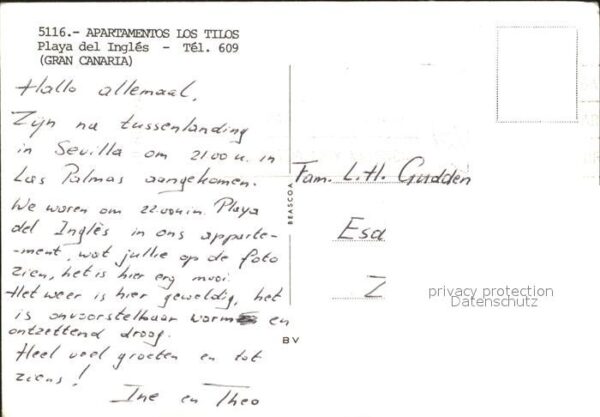 5116.- APARTAMENTOS LOS TILOS
Playa del Inglés - Tél. 609
(GRAN CANARIA)
Hallo allemaal,
Zijn na tussenlanding
in Sevilla om 2100 u. in
Las Palmas aangekomen.
We waren om 22.00 in Playa
del Inglés in ons apparte-
ment, wat jullie op de foto
zien, het is hier erg mooi.
Het weer is hier geweldig, het
is onvoorstelbaar warm en
ontzettend droog.
Heel veel groeten en tot
ziens!
Ine en Theo
BEASCOA
BV
Fam. L.H. Gudden
Esd
Z
privacy protection
Datenschutz